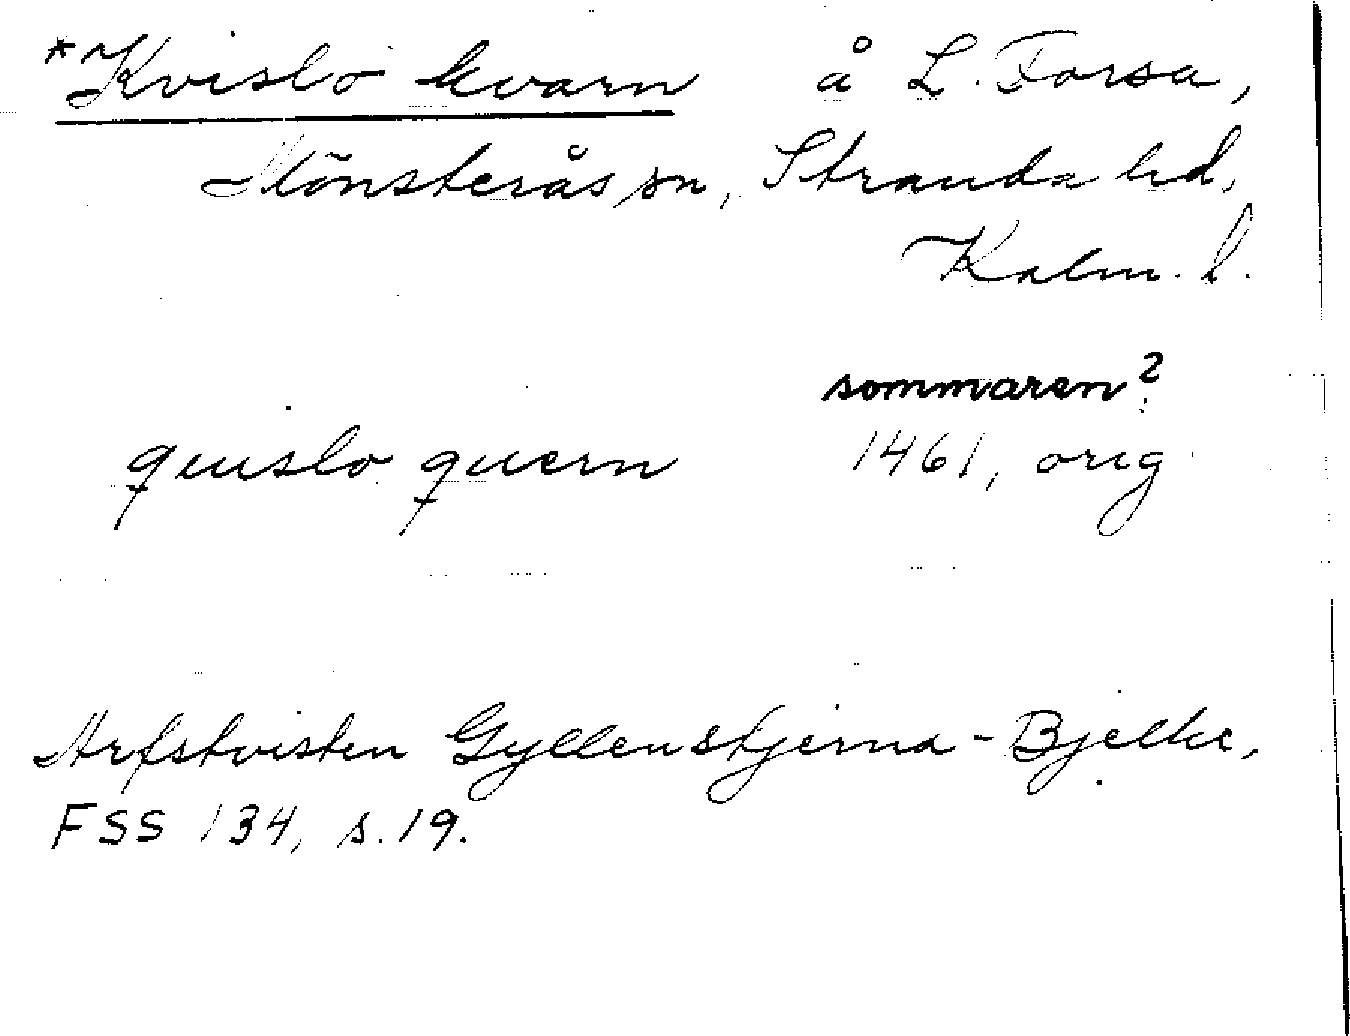 *Kvislo kvarn å L. Forsa,
Mönsterås sn, Stranda hd,
Kalm. l.
sommaren?
quislo quern 1461, orig
Arfstvisten Gyllenstjerna-Bjelke,
FSS 134, s. 19.